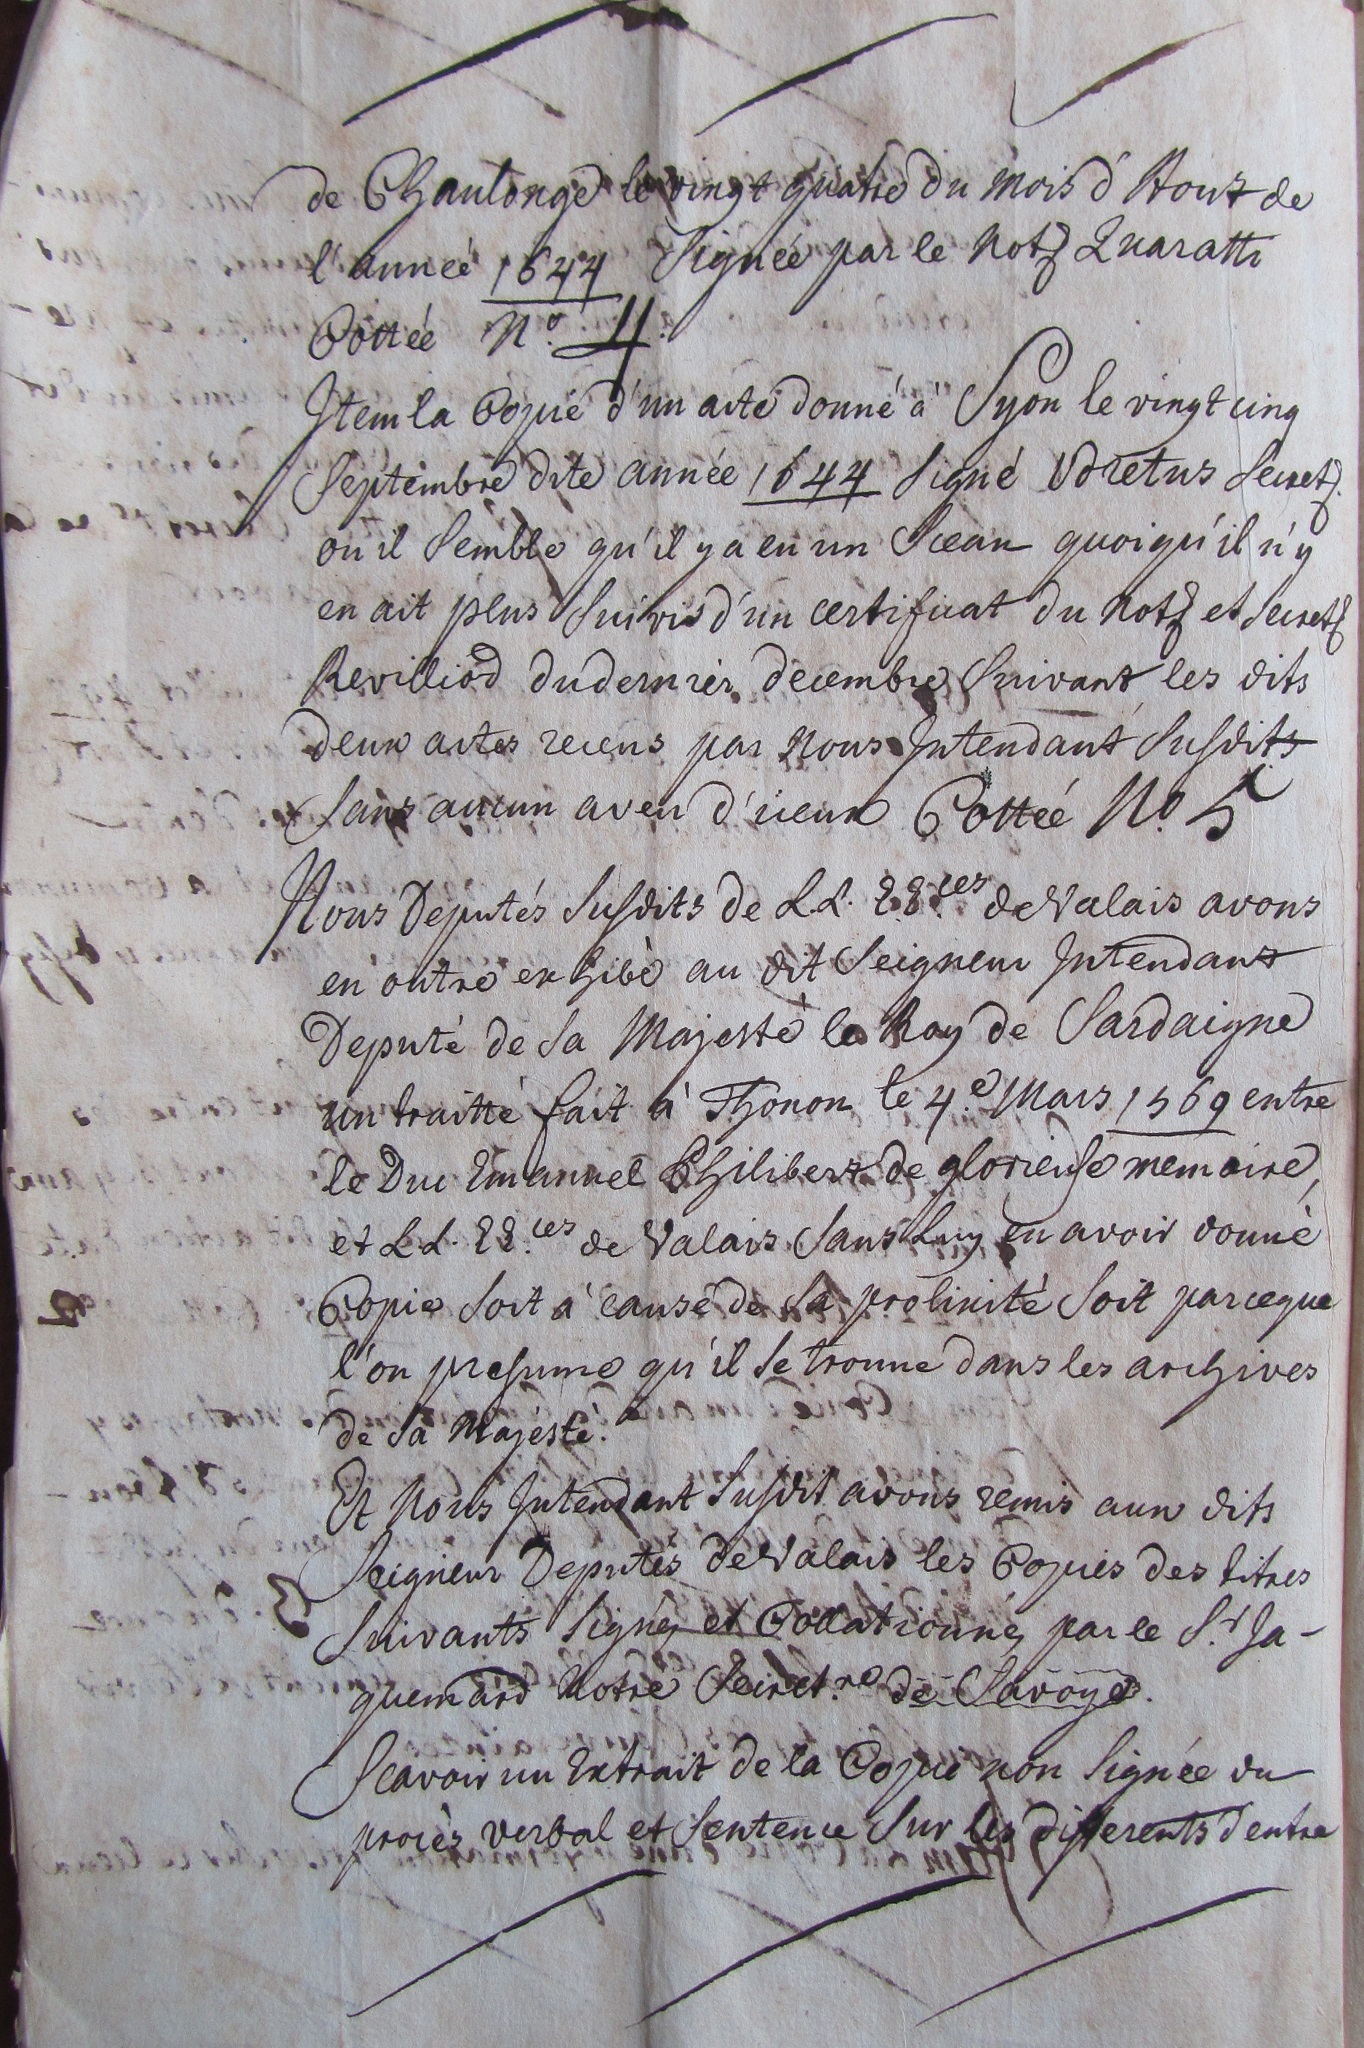 de Chaulonge le vingt quatre du mois d'Aoust de
l'année 1644 Signée par le Not.^e Quaratti
Cottée N.° 4.
Item la Copie d'un acte donné à Syon le vingt cinq
Septembre dite année 1644 Signé Udretus Secret.^e
ou il Semble qu'il y a eu un Sceau quoiqu'il n'y
en ait plus Suivis d'un certificat du Not.^e et Secret.^e
Revilliod du dernier decembre Suivant les dits
deux actes receus par Nous Intendant Susdits
Sans aucun aveu d'iceux Cottée N.° 5
Nous Deputés Susdits de L.L. EE.^ces de Valais avons
en outre exhibé au dit Seigneur Intendant
Deputé de Sa Majesté le Roy de Sardaigne
un traitté fait à Thonon le 4.^e Mars 1569 entre
le Duc Emanuel Philibert de glorieuse memoire,
et L.L. EE.^ces de Valais Sans Luy en avoir donné
Copie Soit à cause de Sa prolixité Soit parceque
l'on presume qu'il Se trouve dans les archives
de Sa Majesté.
Et Nous Intendant Susdit avons remis aux dits
Seigneur Deputés de Valais les Copies des titres
Suivants Signés et Collationnés par le S.^r Ja-
quemard Notre Secret.^re de Savoye.
Scavoir un Extrait de la Copie non Signée du
procès verbal et Sentence Sur les differents d'entre